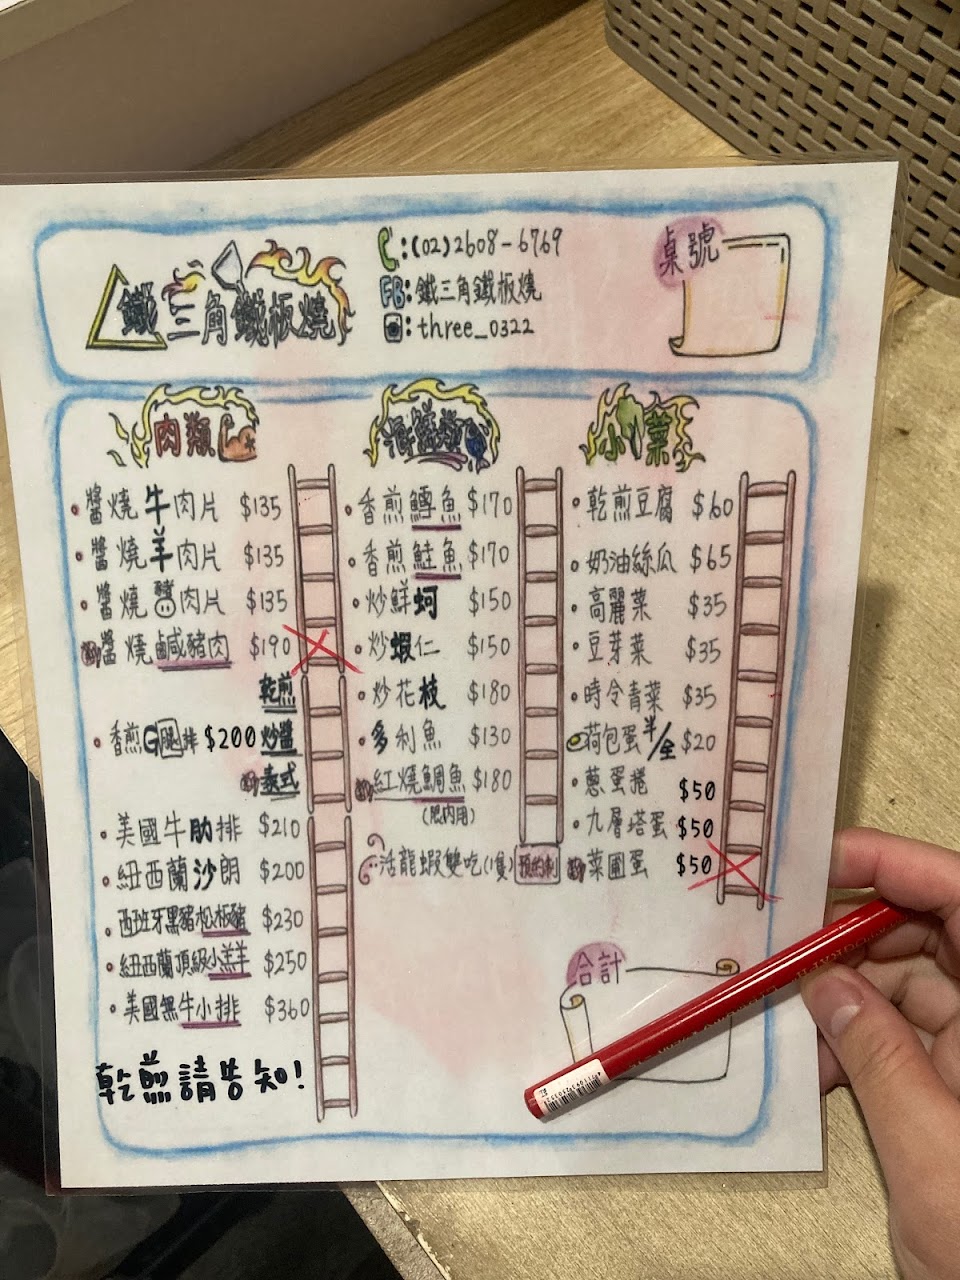 鐵三角鐵板燒
:(02)2608-6769
FB:鐵三角鐵板燒
:three_0322
桌號
肉類
醬燒牛肉片 $135
醬燒羊肉片 $135
醬燒豬肉片 $135
醬燒鹹豬肉 $190
乾煎
香煎G腿排 $200 炒醬
泰式
美國牛肋排 $210
紐西蘭沙朗 $200
西班牙黑豬松板豬 $230
紐西蘭頂級小羔羊 $250
美國無牛小排 $360
乾煎請告知!
海鮮類
香煎鱈魚 $170
香煎鮭魚 $170
炒鮮蚵 $150
炒蝦仁 $150
炒花枝 $180
多利魚 $130
紅燒鯛魚 $180
(肥內用)
活龍蝦雙吃(1隻) 預約制
小菜
乾煎豆腐 $60
奶油絲瓜 $65
高麗菜 $35
豆芽菜 $35
時令青菜 $35
荷包蛋半/全 $20
蔥蛋捲 $50
九層塔蛋 $50
菜圃蛋 $50
合計